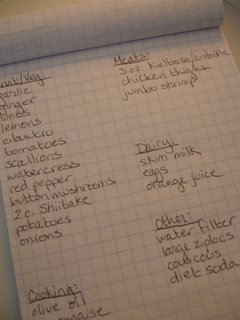 Fruit/Veg:
garlic
ginger
limes
lemons
cilantro
tomatoes
scallions
watercress
red pepper
button mushrooms
2 c. shiitake
potatoes
onions
Meats:
3 oz. kielbasa/andouille
chicken thighs
jumbo shrimps
Dairy:
skim milk
eggs
orange juice
Other:
water filter
large ziplocs
couscous
diet soda
Cooking:
olive oil